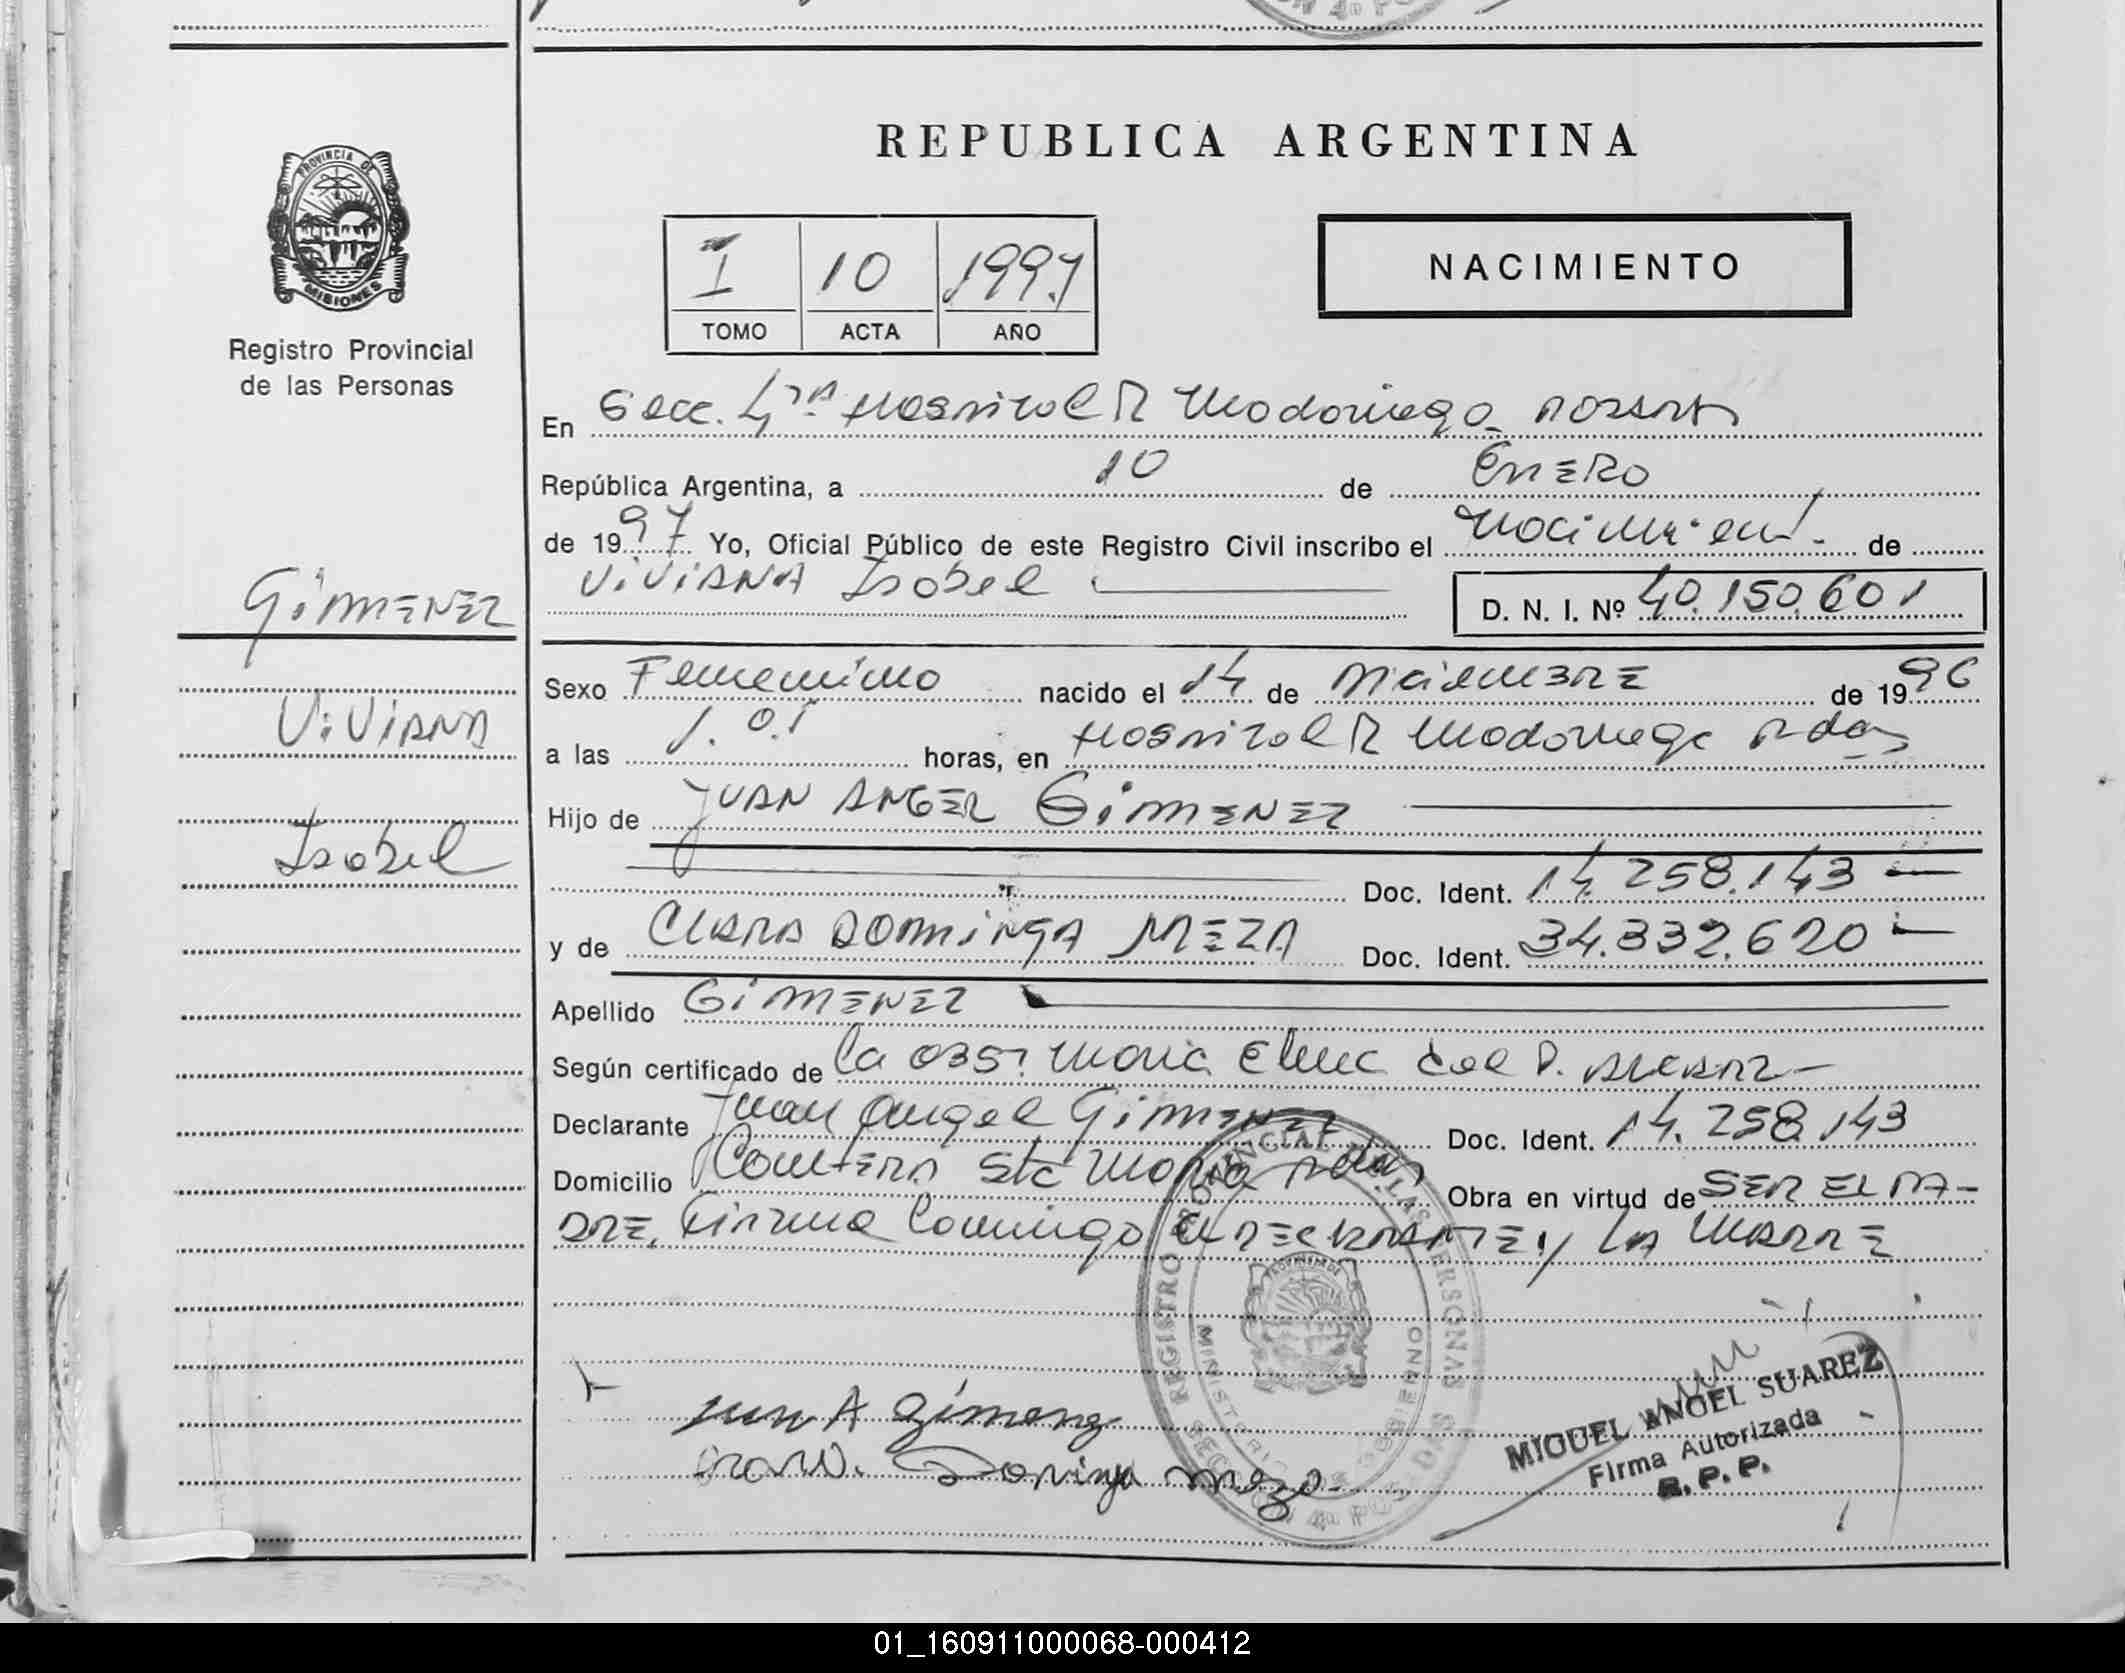 REPUBLICA ARGENTINA
PROVINCIA DE
MISIONES
Registro Provincial
de las Personas
I 10 1997
TOMO ACTA AÑO
NACIMIENTO
En Secc. 4ta Hospital R Madariaga Posadas
República Argentina, a 10 de Enero
de 1997 Yo, Oficial Público de este Registro Civil inscribo el Nacimient. de
Viviana Isabel
D. N. I. Nº 40.150.601
GiMENEZ
ViViANA
Isabel
Sexo Femenino nacido el 14 de Diciembre de 1996
a las 1.01 horas, en Hospital R Madariaga Pdas
Hijo de JUAN ANGEL GiMENEZ
Doc. Ident. 14.258.143
y de CLARA DOMINGA MEZA Doc. Ident. 34.332.620
Apellido GiMENEZ
Según certificado de la Obst Maria Elena del P. 
Declarante Juan Angel GiMENEZ Doc. Ident. 14.258.143
Domicilio Cantera Sta Maria Pdas Obra en virtud de SER EL PA-
DRE, Firma Conmigo el DECLARANTE y LA MADRE
REGISTRO PROVINCIAL DE LAS PERSONAS
MINISTERIO DE GOBIERNO
SECCION 4ª POSADAS
Juan A Gimenez
Dominga Meza
MIGUEL ANGEL SUAREZ
Firma Autorizada
R. P. P.
01_160911000068-000412